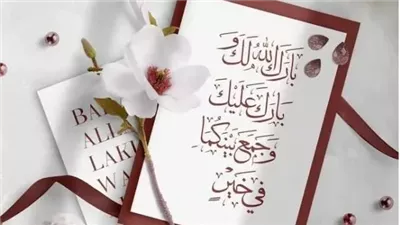 بَارَكَ اللهُ لَكَ وَ
بَارَكَ عَلَيْكَ
وَجَمَعَ بَيْنَكُمَا
فِي خَيْرٍ
BA
ALL
LAK
WA